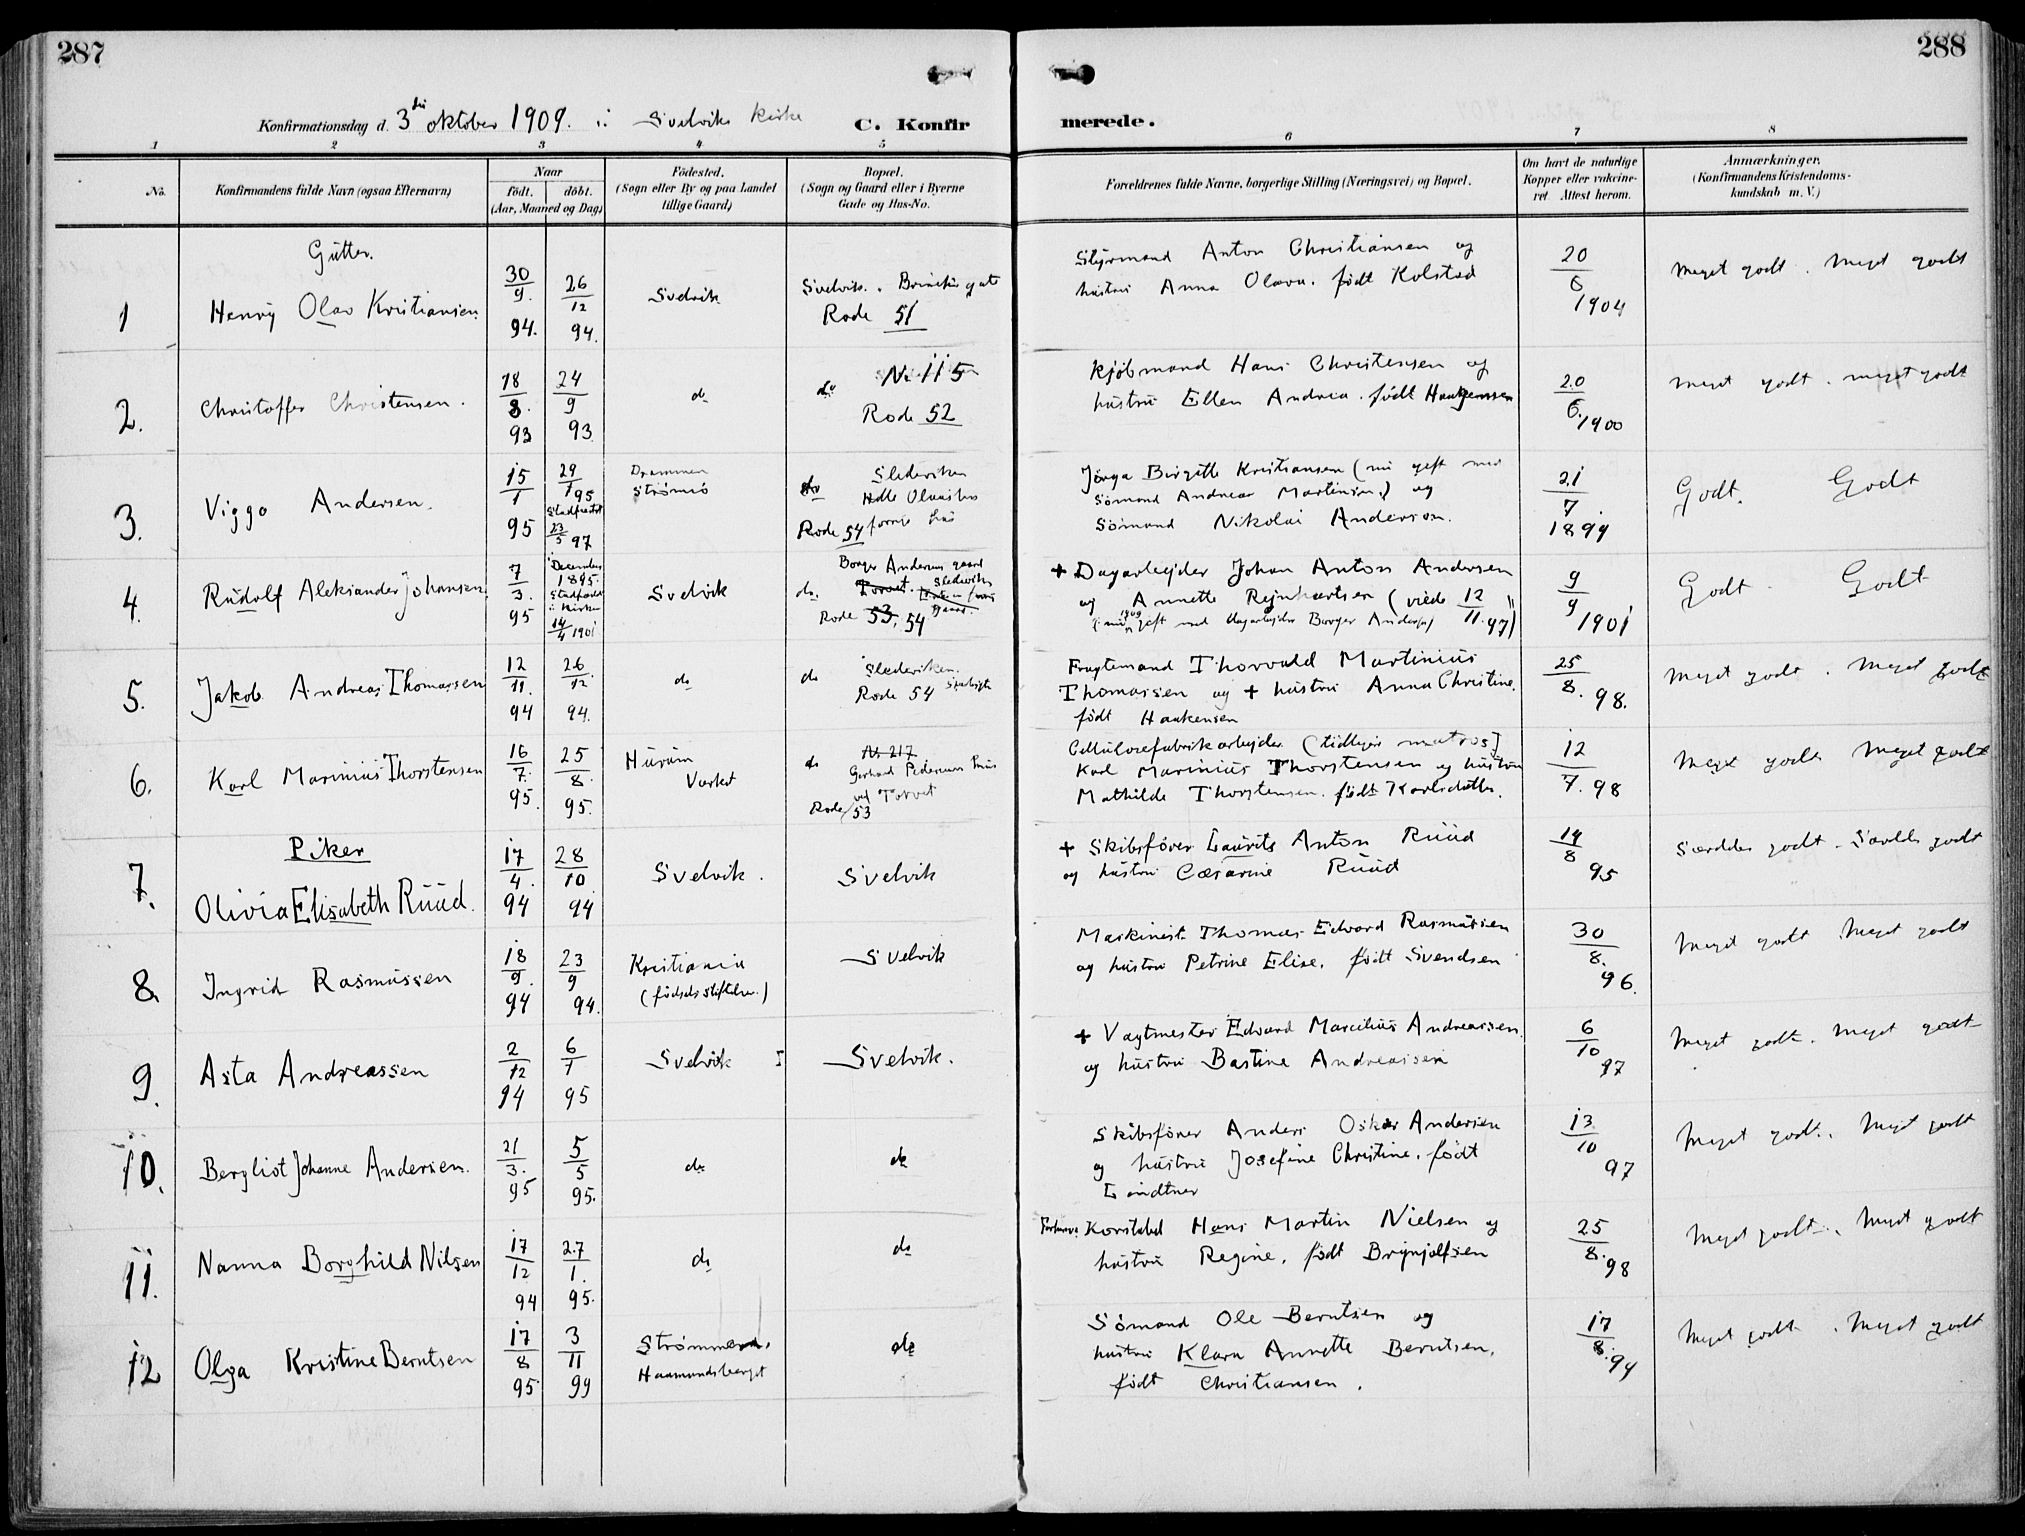 287
288
Konfirmationsdag d. 3die oktober 1909. i Svelviks kirke
C. Konfirmerede.
1 2 3 4 5 6 7 8
No.
Konfirmandens fulde Navn (ogsaa Efternavn)
Naar
født. døbt.
(Aar, Maaned og Dag)
Fødested.
(Sogn eller By og paa Landet
tillige Gaard)
Bopæl.
(Sogn og Gaard eller i Byerne
Gade og Hus-No.
Forældrenes fulde Navne, borgerlige Stilling (Næringsvei) og Bopæl.
Om havt de naturlige
Kopper eller vakcine-
ret Attest herom.
Anmærkninger.
(Konfirmandens Kristendoms-
kundskab m. V.)
Gutter.
1 Henry Olav Kristiansen 30/9. 94. 26/12 94. Svelvik Svelvik. gate Rode 51
Styrmand Anton Christiansen og
hustru Anna Olava. født Kolstad
20/6 1904
Meget godt. Meget godt
2. Christoffer Christensen. 18/8. 93 24/9 93 do do No 115 Rode 52
Kjøbmand Hans Christensen og
hustru Ellen Andrea. født Haakensen
20/6. 1900
Meget godt. meget godt
3. Viggo Andersen. 15/1 95 29/1 95 Stadfæstet 23/5 97 Drammen Strømsø do Slederviken Rode 54
Jörga Birgitte Kristiansen (nu gift med
Sømand Andreas Martinsen.) og
Sømand Nikolai Anderson.
21/7. 1899
Godt. Godt
4. Rudolf Aleksander Johansen. 7/3. 95 December 1895. Stadfæstet i kirken 14/4 1901 Svelvik do. Borger Andersens gaard Torvet. Slederviken Rode 53, 54
+ Dagarbejder Johan Anton Andersen
og Annette Rejnhartsen (viede 12/11. 97)
(nu 1909 gift med dagarbejder Borger Andersen)
9/9 1901
Godt. Godt
5. Jakob Andreas Thomassen 12/11. 94 26/12. 94. do do Slederviken. Rode 54
Fragtemand Thorvald Martinius
Thomassen og + hustru Anna Christine.
født Haakensen
25/8. 98.
Meget godt. Meget godt
6. Karl Marinius Thorstensen 16/7. 95. 25/8. 95. Hurum Verket do No 217. Gerhard Pedersens hus ved Torvet Rode 53
Cellulosefabrikarbejder (tidligere matros)
Karl Marinius Thorstensen og hustru
Mathilde Thorstensen. født Karlsdatter.
12/7. 98
Meget godt Meget godt
Piker
7. Olivia Elisabeth Ruud. 17/4. 94 28/10 94 Svelvik. Svelvik
+ Skibsfører Laurits Anton Ruud
og hustru Cæsarine Ruud
14/8 95
Særdeles godt. Særdeles godt
8. Ingrid Rasmussen 18/9. 94 23/9 94. Kristiania (fødselsstiftelsen.) Svelvik
Maskinist Thomas Edvard Rasmussen
og hustru Petrine Elise. født Svendsen
30/8. 96.
Meget godt Meget godt
9. Asta Andreassen 2/12 94 6/1 95 Svelvik Svelvik.
+ Vagtmester Edvard Marcilius Andreassen.
og hustru Bastine Andreassen
6/10 97
Meget godt. Meget godt
10. Bergliot Johanne Andersen. 21/3. 95 5/5 95. do do
Skibsfører Anders Oskar Andersen
og hustru Josefine Christine. født
Lindtner
13/10 97
Meget godt. Meget godt
11. Nanna Borghild Nilsen 17/12 94 27/1. 95. do do
Forhenv. Konstabel Hans Martin Nielsen og
hustru Regine. født Brynjolfsen
25/8. 98
Meget godt. Meget godt
12 Olga Kristine Berntsen 17/8 95 3/11 99 Haamundsberget do
Sømand Ole Berntsen og
hustru Klara Annette Berntsen.
født Christiansen.
17/8. 99
Meget godt. Meget godt